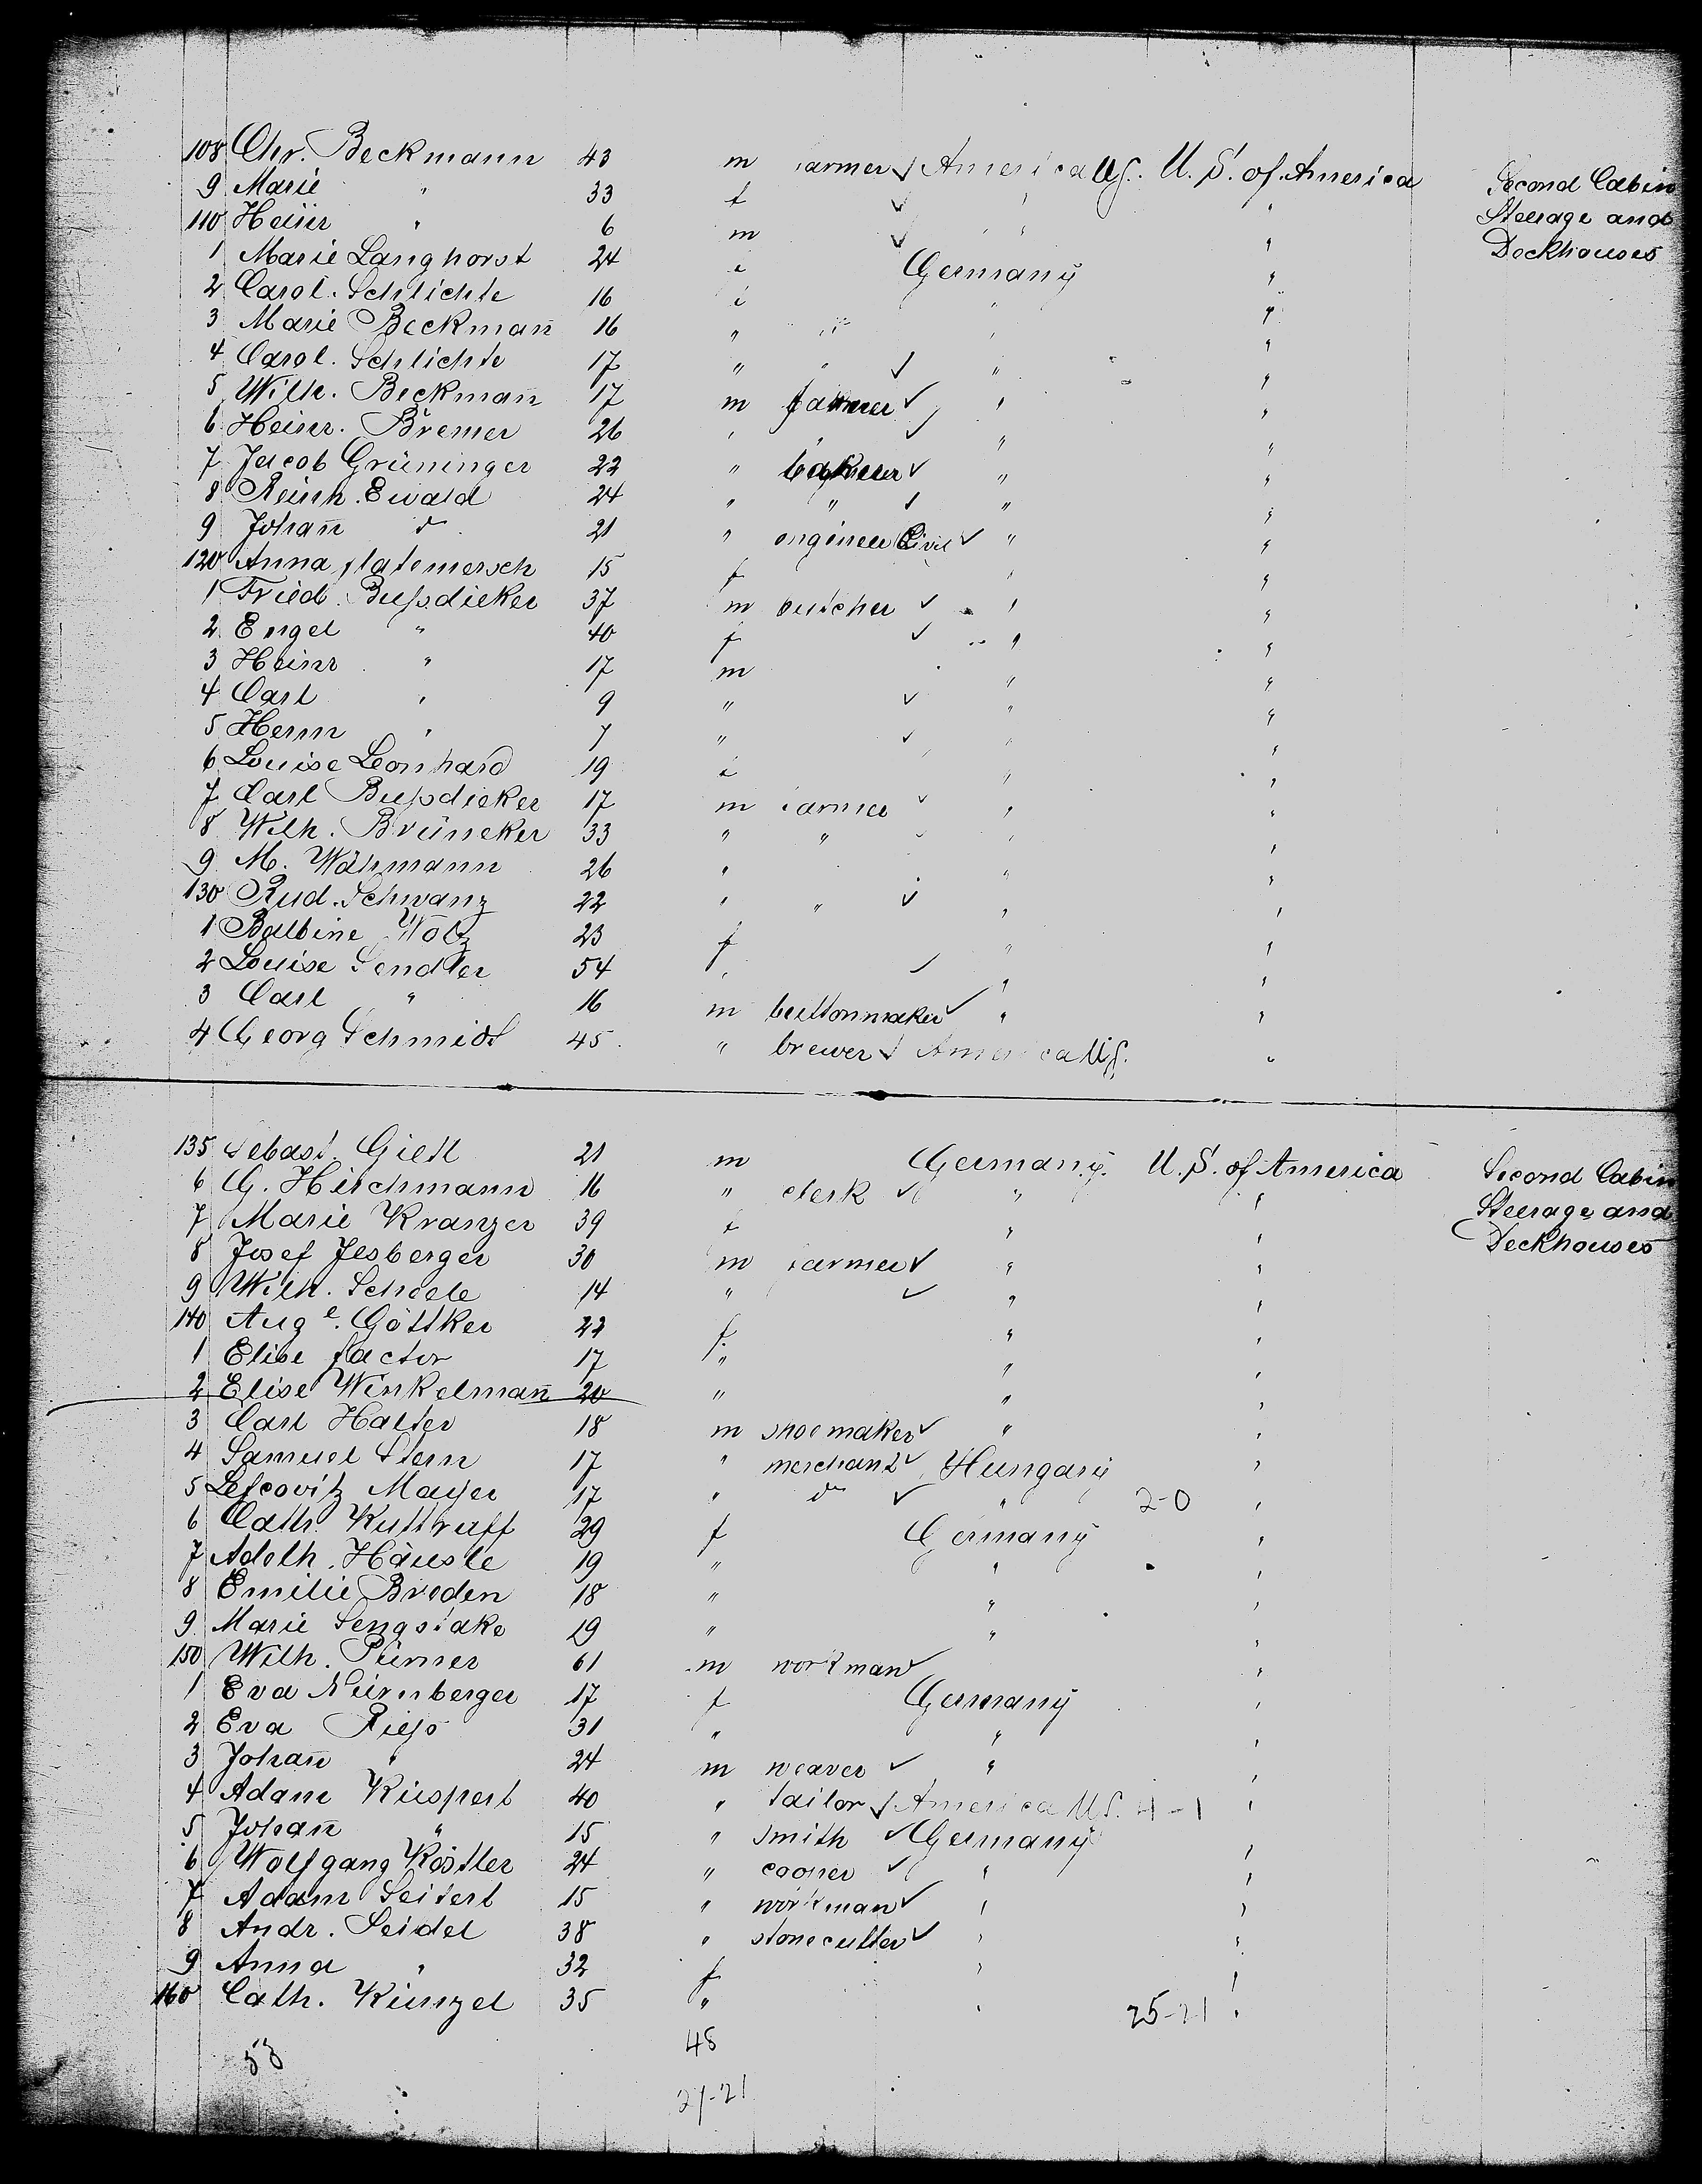 108 Chr. Beckmann 43 m farmer ✓ America US. U. S. of America Second Cabin
9 Marie " 33 f ✓ " " Steerage and
110 Heinr " 6 m ✓ " " Deckhouses
1 Marie Langhorst 24 f Germany "
2 Carol. Schlichte 16 " "
3 Marie Beckmañ 16 " " " "
4 Carol. Schlichte 17 " " ✓ " "
5 Wilh. Beckmañ 17 m farmer ✓ " "
6 Heinr. Bremer 26 " " ✓ " "
7 Jacob Grüninger 22 " ✓ " "
8 Reinh. Ewald 24 " " ✓ " "
9 Johañ do 21 " engineer Civil ✓ " "
120 Anna flatemersch 15 f " "
1 Fried. Bußdieker 37 m butcher ✓ " "
2 Engel " 40 f ✓ " "
3 Heinr " 17 m " "
4 Carl " 9 " ✓ " "
5 Herm " 7 " ✓ " "
6 Louise Leonhard 19 f " "
7 Carl Bußdieker 17 m farmer ✓ " "
8 Wilh. Brüneker 33 " " ✓ " "
9 M. Währmann 26 " " "
130 Rud. Schwanz 22 " " ✓ " "
1 Balbine Wolz 23 f " "
2 Louise Sendler 54 " ✓ " "
3 Carl " 16 m buttonmaker ✓ " "
4 Georg Schmidt 45 " brewer ✓ America US. "
135 Sebast. Gietl 21 m Germany. U. S. of America Second Cabin
6 G. Hirchmann 16 " clerk ✓ " " Steerage and
7 Marie Kranzer 39 f " " Deckhouses
8 Josef Jesberger 30 m farmer ✓ " "
9 Wilh. Scheele 14 " ✓ " "
140 Aug e. Göttker 22 f. " "
1 Elise factor 17 " " "
2 Elise Winkelmañ 20 " " "
3 Carl Halter 18 m shoemaker ✓ " "
4 Samuel Stern 17 " merchant ✓ Hungary "
5 Lefcovitz Mayer 17 " do ✓ " 2-0 "
6 Cath. Kuttruff 29 f Germany "
7 Adelh. Häusle 19 " " "
8 Emilie Broden 18 " " "
9 Marie Sengstake 19 " " "
150 Wilh. Pürner 61 m workman ✓ "
1 Eva Nürnberger 17 f Germany "
2 Eva Rieß 31 " " "
3 Johañ " 24 m weaver ✓ " "
4 Adam Küspert 40 " tailor ✓ America US. 4-1 "
5 Johañ " 15 " smith ✓ Germany "
6 Wolfgang Köstler 24 " cooper ✓ " "
7 Adam Seifert 15 " workman ✓ " "
8 Andr. Seidel 38 " stonecutter ✓ " "
9 Anna " 32 f " "
160 Cath. Künzel 35 " " 25-21 "
53 48
27-21